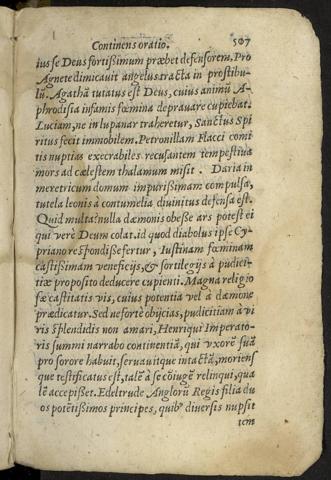 Continens oratio. 507
ius se Deus fortissimum præbet defensorem. Pro
Agnete dimicauit angelus tracta in prostibu-
lũ. Agathã tutatus est Deus, cuius animũ A-
phrodisia infamis fœmina deprauare cupiebat.
Luciam, ne in lupanar traheretur, Sanctus Spi
ritus fecit immobilem. Petronillam Flacci comi
tis nuptias execrabiles recusantem tempestiua
mors ad cælestem thalamum misit. Daria in
meretricum domum impurissimam compulsa,
tutela leonis à contumelia diuinitus defensa est.
Quid multa? nulla dæmonis obesse ars potest ei
qui verè Deum colat. id quod diabolus ipse Cy-
priano respõdisse fertur, Iustinam fœminam
castissimam veneficijs, & sortilegijs à pudici-
tiæ proposito deducere cupienti. Magna religio
sæ castitatis vis, cuius potentia vel à dæmone
prædicatur. Sed ne fortè obijcias, pudicitiam à vi
ris splendidis non amari, Henrici Imperato-
ris summi narrabo continentiã, qui vxorẽ suã
pro sorore habuit, seruauitque intactã, moriens
que testificatus est, talẽ à se cõiugẽ relinqui, qua
lẽ accepisset. Edeltrude Anglorũ Regis filia du
os potẽtissimos principes, quibꝰ diuersis nupsit
tem